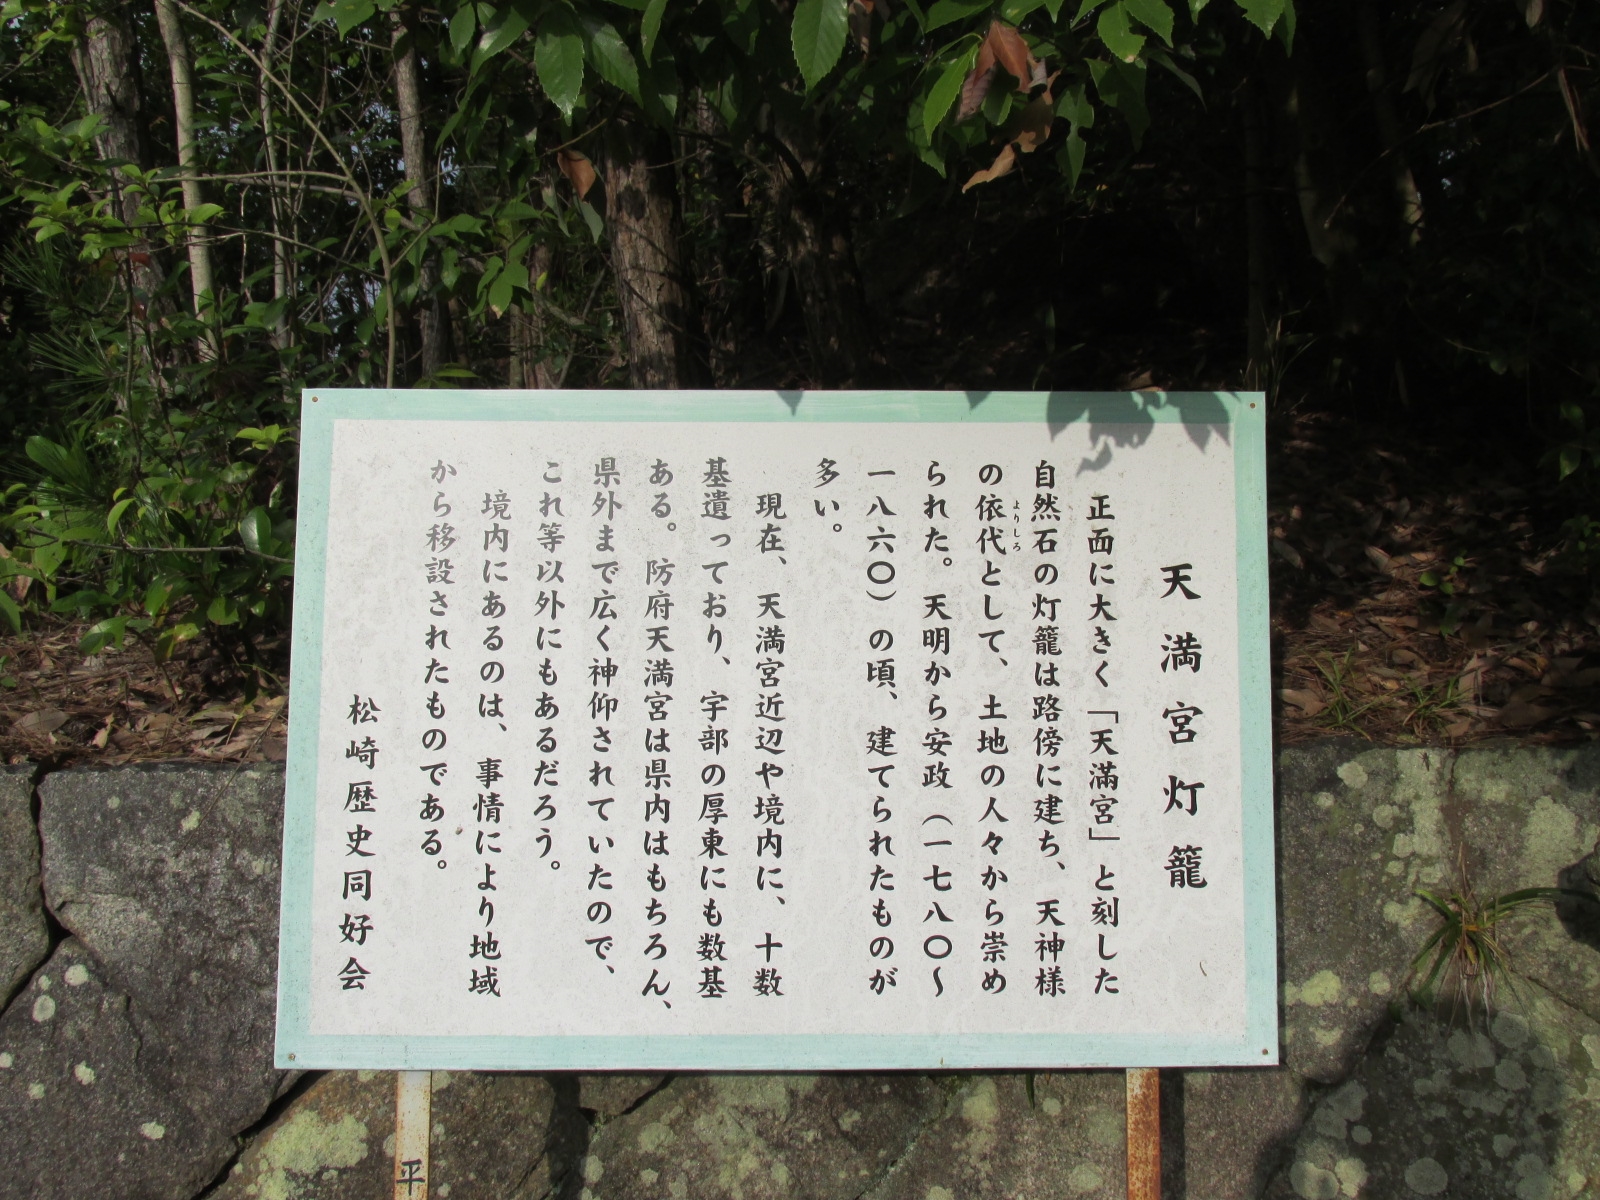 天満宮灯籠
正面に大きく「天満宮」と刻した
自然石の灯籠は路傍に建ち、天神様
の依代として、土地の人々から崇め
よりしろ
られた。天明から安政（一七八〇～
一八六〇）の頃、建てられたものが
多い。
現在、天満宮近辺や境内に、十数
基遺っており、宇部の厚東にも数基
ある。防府天満宮は県内はもちろん、
県外まで広く神仰されていたので、
これ等以外にもあるだろう。
境内にあるのは、事情により地域
から移設されたものである。
松崎歴史同好会
平